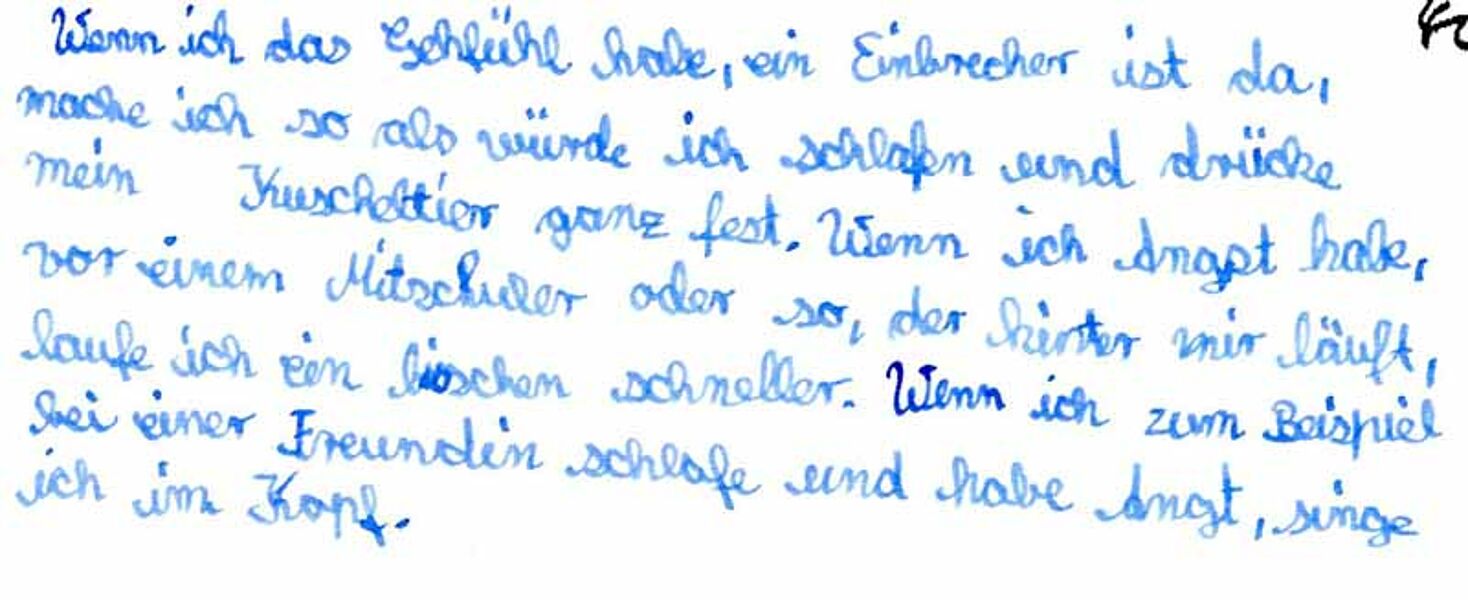 Wenn ich das Gehfühl habe, ein Einbrecher ist da,
mache ich so als würde ich schlafen und drücke
mein Kuscheltier ganz fest. Wenn ich Angst habe,
vor einem Mitschuler oder so, der hinter mir läuft,
laufe ich ein bisschen schneller. Wenn ich zum Beispiel
bei einer Freundin schlafe und habe Angt, singe
ich im Kopf.